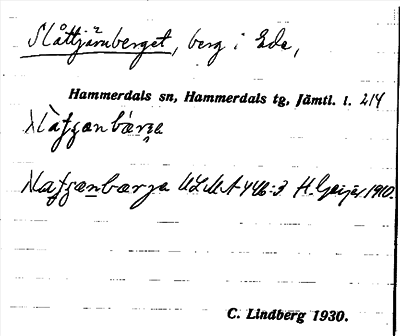 Slåttjärnberget, berg i Ede,
Hammerdals sn, Hammerdals tg, Jämtl. l. 214
ULMA 446:3 H. Geijer 1910.
C. Lindberg 1930.